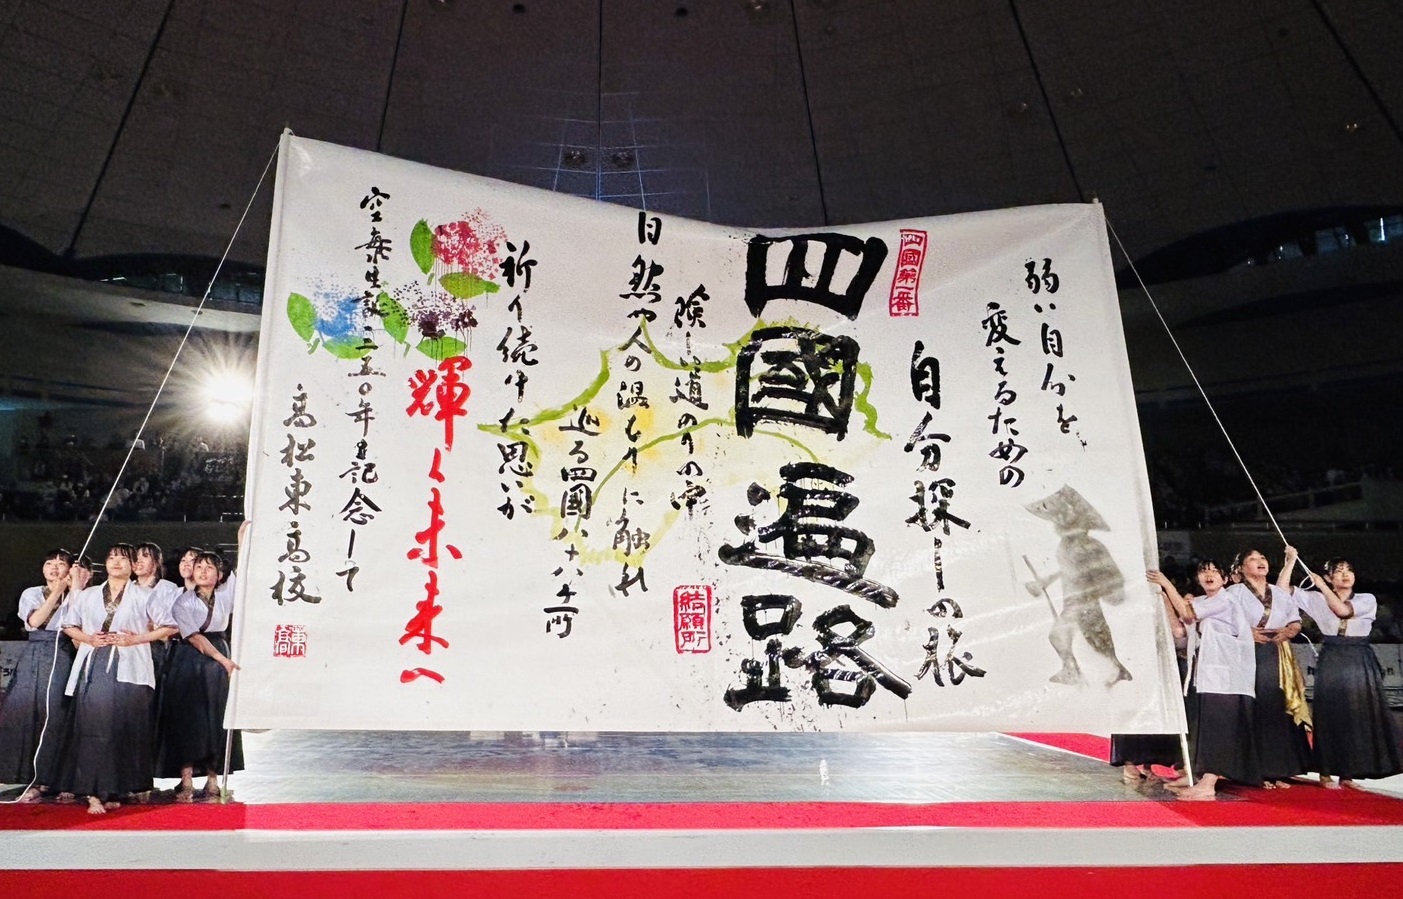 弱い自分を
変えるための
自分探しの旅
四国第一番
四國遍路
険しい道のりの中
自然や人の温もりに触れ
結願所
巡る四国八十八ヶ所
祈り続けた思いが
輝く未来へ
空海生誕一二五〇年を記念して
高松東高校